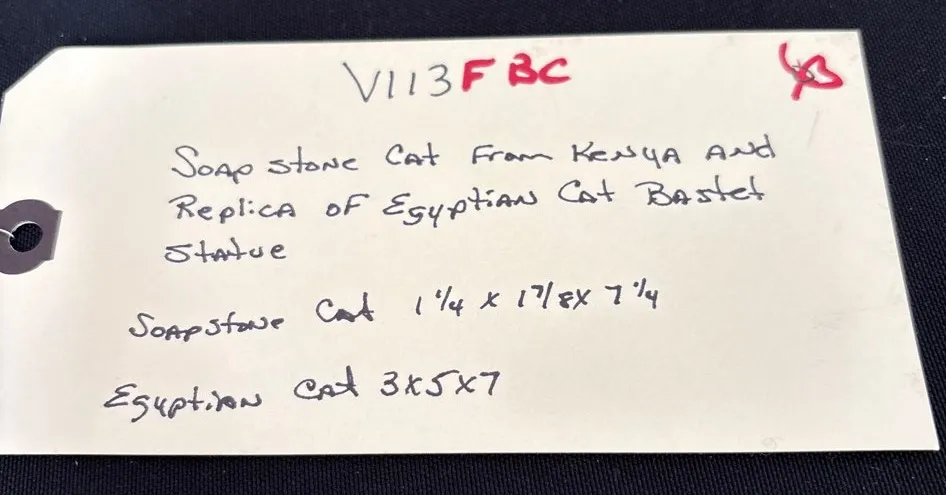 V113 F BC
Soap stone Cat From Kenya And
Replica of Egyptian Cat Bastet
Statue
Soapstone Cat 1 1/4 x 1 7/8 x 7 1/4
Egyptian Cat 3x5x7